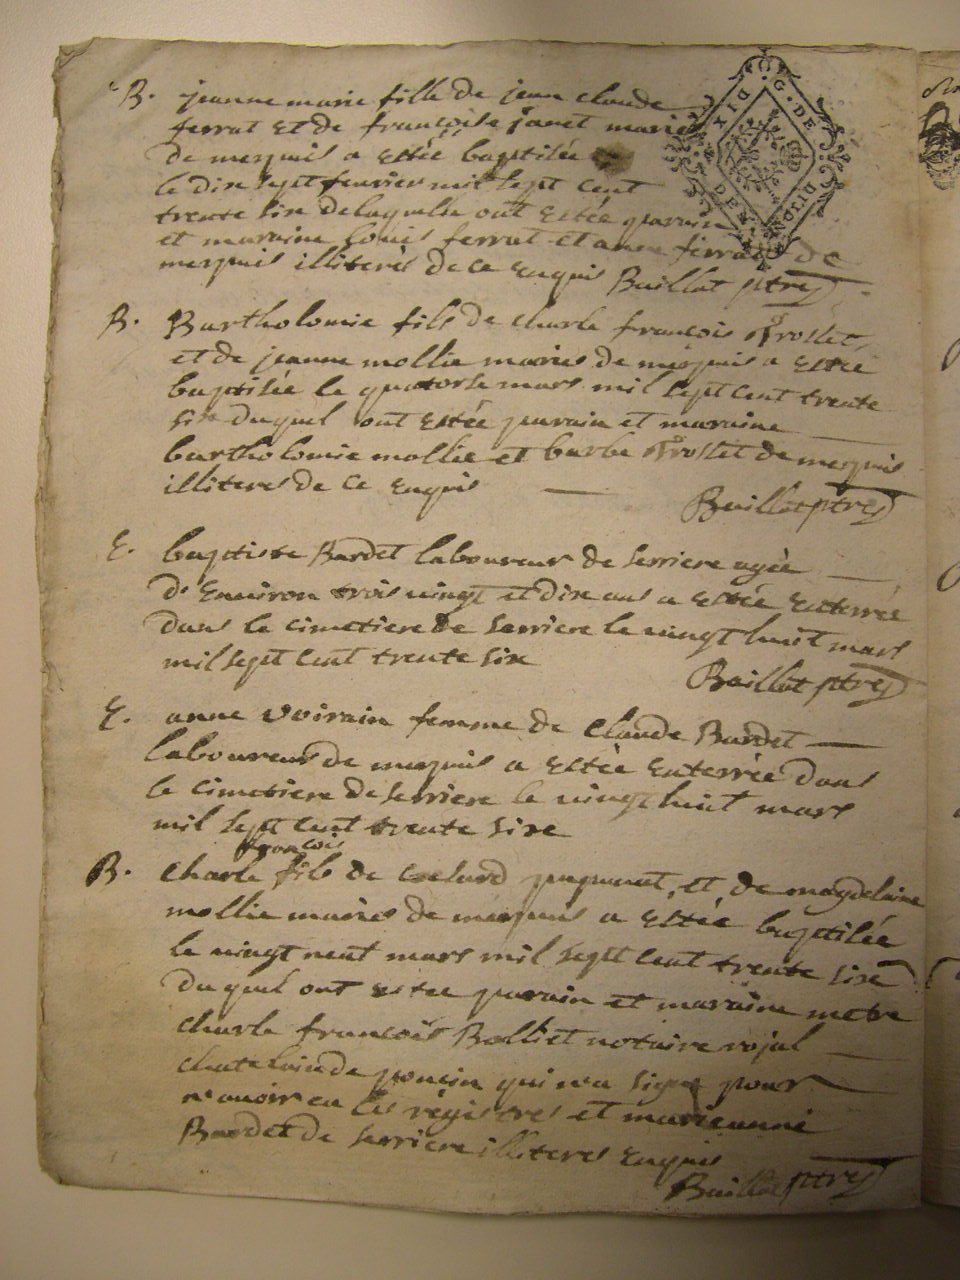 B. jeanne marie fille de jean claude
ferrat et de françoise janet mariés
de merpuis a estée baptisée
le dix sept feuvrier mil sept cent
trente six de laquelle ont estée parain
et maraine louis ferrat et anne ferrat de
merpuis illiterés de ce enquis Baillat ptre
G. DE DIJON
DIX DEN
B. Bartholomie fils de charle françois Troslet
et de jeanne mollie mariés de merpuis a estée
baptisée le quatorse mars mil sept cent trente
six duquel ont estée parain et maraine
bartholomie mollie et barbe Troslet de merpuis
illiterés de ce enquis Baillat ptre
E. baptiste Bardet laboureur de serriere agée
d'environ trois vingt et dix ans a estée enterrée
dans le cimetiere de serriere le vingt huit mars
mil sept cent trente six Baillat ptre
E. anne voirain femme de claude Bardet
laboureur de merpuis a estée enterrée dans
le cimetiere de serriere le vingt huit mars
mil sept cent trente six
françois
B. charle fils de et de magdelaine
mollie mariés de merpuis a estée baptisée
le vingt neuf mars mil sept cent trente six
duquel ont estée parain et maraine metre
charle françois Balliet notaire rojal
chatelain de poncin qui n'a signé pour
n'avoir eu les régistres et marieanne
Bardet de serriere illiteres enquis
Baillat ptre